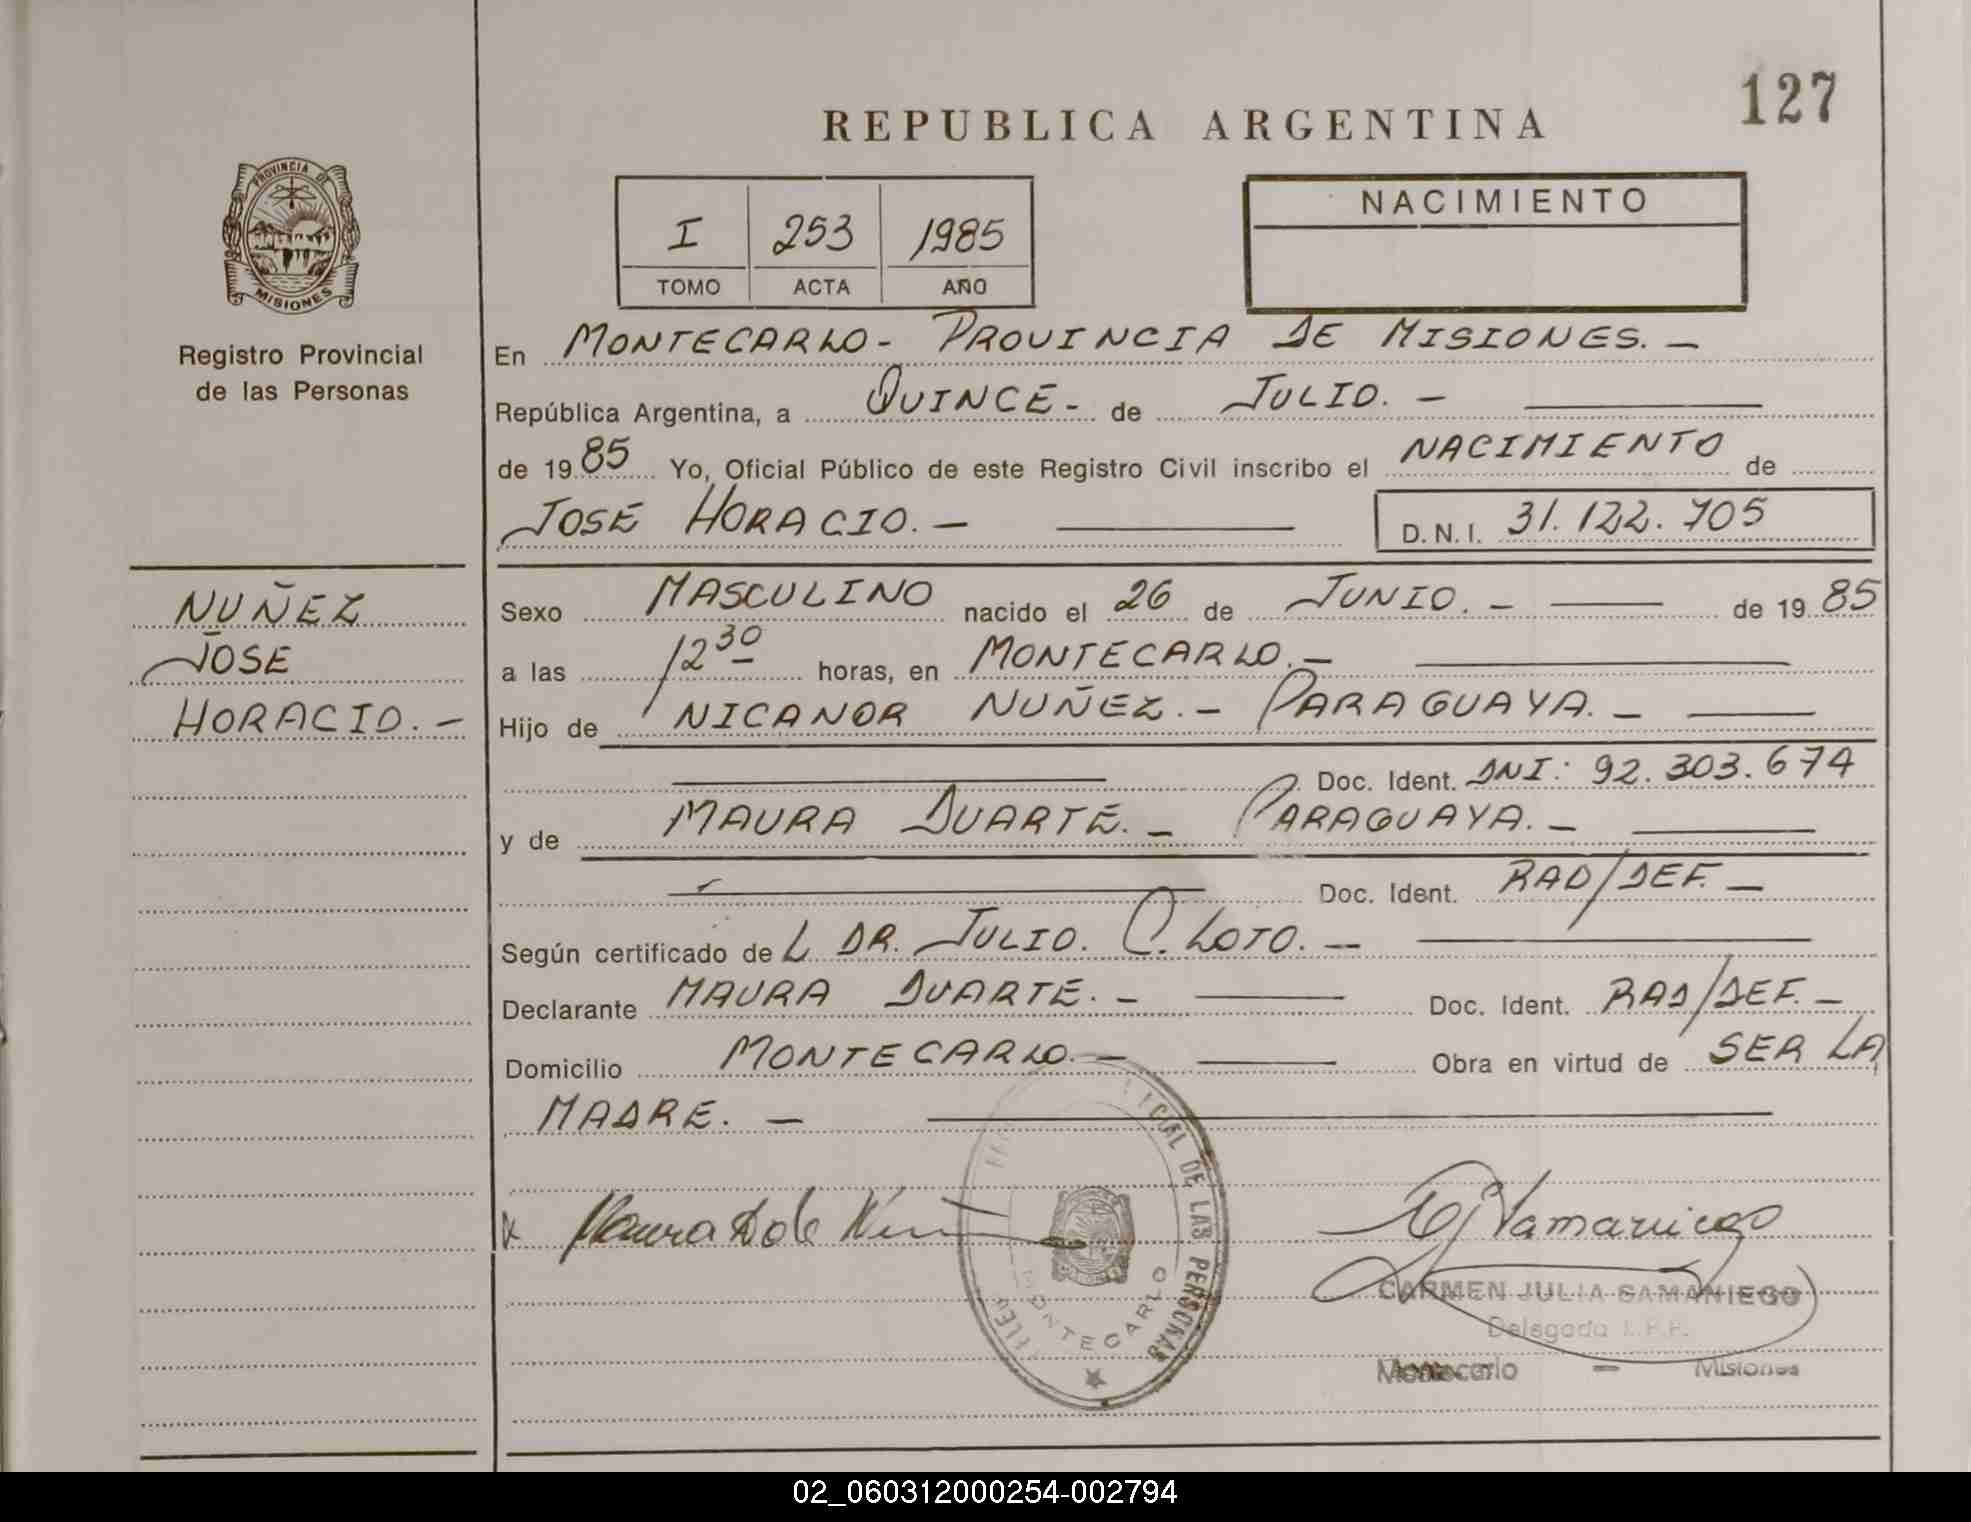 127
REPUBLICA ARGENTINA
PROVINCIA DE
MISIONES
Registro Provincial
de las Personas
I 253 1985
TOMO ACTA AÑO
NACIMIENTO
En MONTECARLO- PROVINCIA DE MISIONES. -
República Argentina, a QUINCE- de JULIO. -
de 1985 Yo, Oficial Público de este Registro Civil inscribo el NACIMIENTO de
JOSE HORACIO. - D.N.I. 31.122.705
NUÑEZ
JOSE
HORACIO. -
Sexo MASCULINO nacido el 26 de JUNIO. - de 1985
a las 12 30 horas, en MONTECARLO. -
Hijo de NICANOR NUÑEZ. - PARAGUAYA. -
Doc. Ident. DNI: 92.303.674
y de MAURA DUARTE. - PARAGUAYA. -
Doc. Ident. RAD/DEF. -
Según certificado de L DR. JULIO. C. LOTO. -
Declarante MAURA DUARTE. - Doc. Ident. RAD/DEF. -
Domicilio MONTECARLO. - Obra en virtud de SER LA
MADRE. -
Maura D de
DE LAS PERSONAS
MONTECARLO
CARMEN JULIA SAMANIEGO
Delegada
Montecarlo - Misiones
02_060312000254-002794